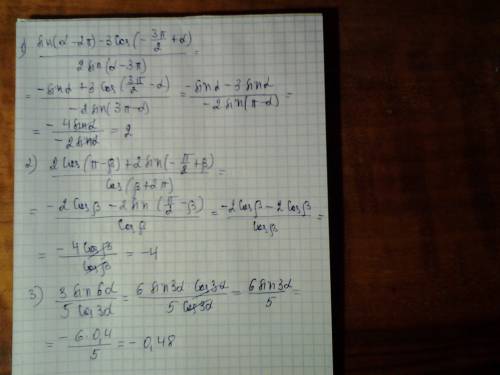 1) (sin(α-2π)-3cos(-3π/2+α))/(2sin(α-3π)) =
= (-sinα+3cos(3π/2-α))/(-2sin(3π-α)) = (-sinα-3sinα)/(-2sin(π-α)) =
= -4sinα/-2sinα = 2
2) (2cos(π-β)+2sin(-π/2+β))/(cos(β+2π)) =
= (-2cosβ-2sin(π/2-β))/cosβ = (-2cosβ-2cosβ)/cosβ =
= -4cosβ/cosβ = -4
3) 3sin6α/5cos3α = 6sin3α cos3α/5cos3α = 6sin3α/5 =
= -6·0,4/5 = -0,48